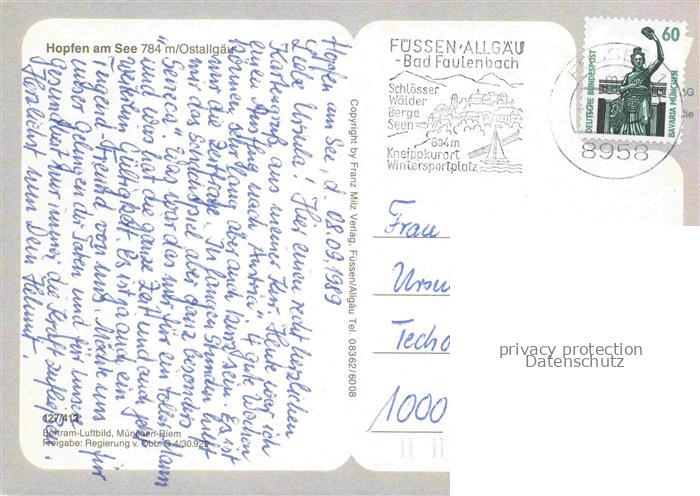 Hopfen am See 784 m/Ostallgäu
Hopfen am See, d. 08.09.1989
Liebe Ursula! Hier einen recht herzlichen
Kartengruß aus meiner Kur. Heute war ich
einen Ausflug nach Austria. 4 gute Wochen
können sehr lang aber auch kurz sein. Es ist
nur die Zeitfrage. In jungen Stunden hilft
mir das Schicksal aber ganz besonders
"Seneca" Was war das nur für ein toller Mann
und was hat die ganze Zeit und auch jetzt
Gültigkeit. Es ist ja auch ein
Tugend-Freund von uns. Möchte uns für
unser Gelingen der Taten und für unsere
Gesundheit nun immer die Kraft zufließen.
Herzlichst nun Dein Helmut.
127/413
Bertram-Luftbild, München-Riem
Freigabe: Regierung v. Obb. G 4/30.929
Copyright by Franz Milz Verlag, Füssen/Allgäu Tel. 08362/6008
FÜSSEN·ALLGÄU
-Bad Faulenbach
Schlösser
Wälder
Berge
Seen
804 m
Kneippkurort
Wintersportplatz
8958
60
DEUTSCHE BUNDESPOST
BAVARIA MÜNCHEN
Frau
Ursu
Techo
1000
privacy protection
Datenschutz